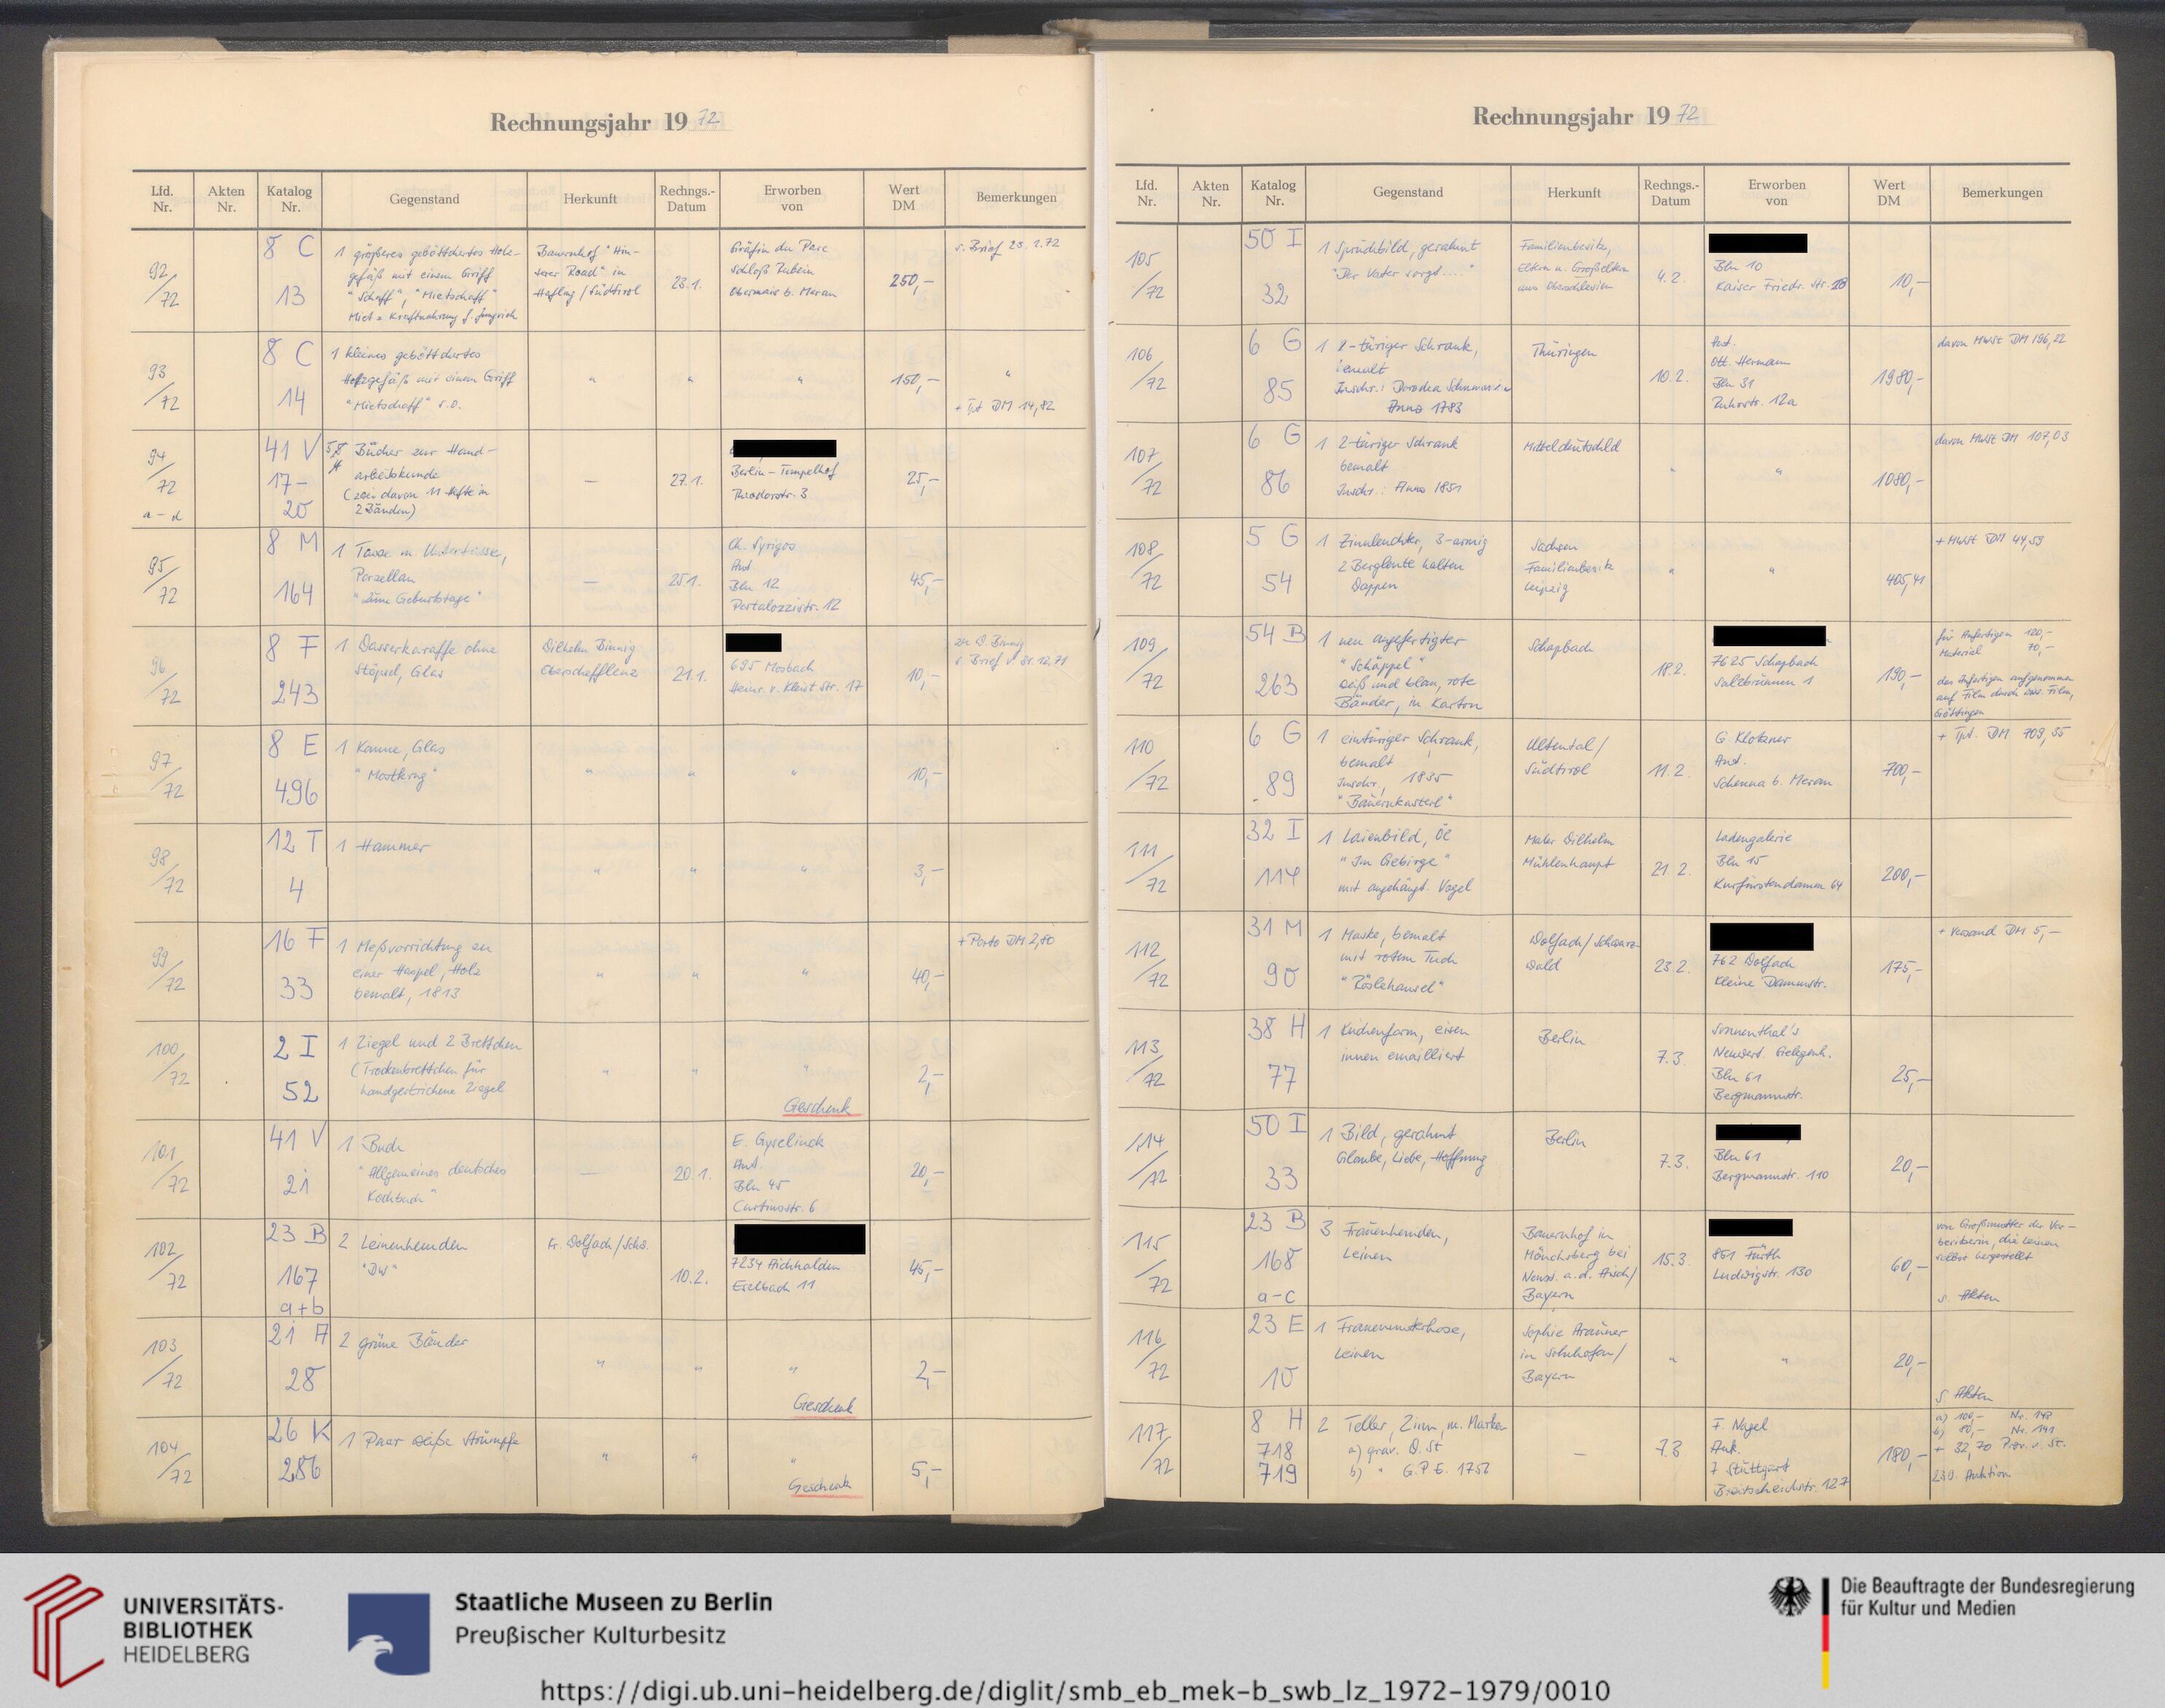 Rechnungsjahr 19 72
Lfd. Nr.
Akten Nr.
Katalog Nr.
Gegenstand
Herkunft
Rechngs.-Datum
Erworben von
Wert DM
Bemerkungen
92/72
8 C 13
1 größeres geböttchertes Holz-
gefäß mit einem Griff
"Schaff", "Mietschaff"
Miet = Kraftnahrung f. Jungvieh
Bauernhof "Hin-
terer Road" in
Hafling / Südtirol
23.1.
Gräfin du Parc
Schloß Rubein
Obermais b. Meran
250,-
s. Brief 23.1.72
93/72
8 C 14
1 kleines geböttchertes
Holzgefäß mit einem Griff
"Mietschaff" s.o.
"
"
"
150,-
"
+ Tpt DM 14,82
94/72 a-d
41 V 17-20
Bücher zur Hand-
arbeitskunde
davon 11 Hefte in
2 Bänden)
—
27.1.
Berlin-Tempelhof
Theodorstr. 3
25,-
95/72
8 M 164
1 Tasse m. Untertasse,
Porzellan
"zum Geburtstage"
—
25.1.
Ch. Syrigos
Ant.
Bln 12
Pestalozzistr. 12
45,-
96/72
8 F 243
1 Wasserkaraffe ohne
Stöpsel, Glas
Wilhelm Binnig
Oberschefflenz
21.1.
695 Mosbach
Heinr. v. Kleist Str. 17
10,-
zu W. Binnig
s. Brief v. 31.12.71
97/72
8 E 496
1 Kanne, Glas
"Mostkrug"
"
"
"
10,-
98/72
12 T 4
1 Hammer
"
"
"
3,-
99/72
16 F 33
1 Meßvorrichtung zu
einer Haspel, Holz
bemalt, 1813
"
"
"
40,-
+ Porto DM 2,80
100/72
2 I 52
1 Ziegel und 2 Brettchen
(Trockenbrettchen für
handgestrichene Ziegel
"
"
"
Geschenk
2,-
101/72
41 V 21
1 Buch
"Allgemeines deutsches
Kochbuch"
—
20.1.
E. Gyselinck
Ant.
Bln 45
Curtiusstr. 6
20,-
102/72
23 B 167 a+b
2 Leinenhemden
"DW"
Kr. Wolfach/Schw.
10.2.
7234 Aichhalden
Eselbach 11
45,-
103/72
21 A 28
2 grüne Bänder
"
"
"
Geschenk
2,-
104/72
26 K 286
1 Paar weiße Strümpfe
"
"
"
Geschenk
5,-
Rechnungsjahr 19 72
Lfd. Nr.
Akten Nr.
Katalog Nr.
Gegenstand
Herkunft
Rechngs.-Datum
Erworben von
Wert DM
Bemerkungen
105/72
50 I 32
1 Spruchbild, gerahmt
"Der Vater sorgt...."
Familienbesitz,
Eltern u. Großeltern
aus Oberschlesien
4.2.
Bln 10
Kaiser Friedr. Str. 28
10,-
106/72
6 G 85
1 2-türiger Schrank,
bemalt
Inschr.: Dorodea
Anno 1783
Thüringen
10.2.
Ant.
Ott. Hermann
Bln 31
12a
1980,-
davon MwSt DM 196,22
107/72
6 G 86
1 2-türiger Schrank
bemalt
Inschr.: Anno 1851
Mitteldeutschld
"
"
1080,-
davon MwSt DM 107,03
108/72
5 G 54
1 Zinnleuchter, 3-armig
2 Bergleute halten
Wappen
Sachsen
Familienbesitz
Leipzig
"
"
405,41
+ MwSt DM 44,59
109/72
54 B 263
1 neu angefertigter
"Schäppel"
weiß und blau, rote
Bänder, in Karton
Schapbach
18.2.
7625 Schapbach
Salzbrunnen 1
190,-
für Anfertigen 120,-
Material 70,-
das Anfertigen aufgenommen
auf Film durch wiss. Film,
Göttingen
110/72
6 G 89
1 eintüriger Schrank,
bemalt
Inschr. 1835
"Bauernkasterl"
Ultental/
Südtirol
11.2.
G. Klotzner
Ant.
Schenna b. Meran
700,-
+ Tpt. DM 709,55
111/72
32 I 114
1 Laienbild, Öl
"Im Gebirge"
mit angehängt. Vogel
Maler Wilhelm
Mühlenhaupt
21.2.
Ladengalerie
Bln 15
Kurfürstendamm 64
200,-
112/72
31 M 90
1 Maske, bemalt
mit rotem Tuch
"Röslehansel"
Wolfach/Schwarz-
wald
23.2.
762 Wolfach
Kleine Dammstr.
175,-
+ Versand DM 5,-
113/72
38 H 77
1 Kuchenform, eisen
innen emailliert
Berlin
7.3.
Sonnenthal's
Neuwert. Gelegenh.
Bln 61
Bergmannstr.
25,-
114/72
50 I 33
1 Bild, gerahmt
Glaube, Liebe, Hoffnung
Berlin
7.3.
Bln 61
Bergmannstr. 110
20,-
115/72
23 B 168 a-c
3 Frauenhemden,
Leinen
Bauernhof in
Münchsberg bei
Neust. a.d. Aisch/
Bayern
15.3.
851 Fürth
Ludwigstr. 130
60,-
von Großmutter der Vor-
besitzerin, die Leinen
selbst hergestellt
s. Akten
116/72
23 E 10
1 Frauenunterhose,
Leinen
Sophie
in
Bayern
"
"
20,-
s. Akten
117/72
8 H 718 719
2 Teller, Zinn, m. Marken
a) grav. D. St
b) " G.P.G. 1756
—
7.3
F. Nagel
Auk.
7 Stuttgart
Breitscheidstr. 127
180,-
a) 100,- Nr. 142
b) 80,- Nr. 141
+ 32,70 Prov. u. St.
230. Auktion
UNIVERSITÄTS-
BIBLIOTHEK
HEIDELBERG
Staatliche Museen zu Berlin
Preußischer Kulturbesitz
Die Beauftragte der Bundesregierung
für Kultur und Medien
https://digi.ub.uni-heidelberg.de/diglit/smb_eb_mek-b_swb_lz_1972-1979/0010